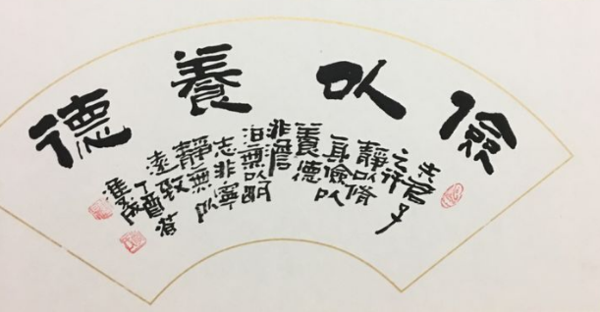 儉以養德
夫君子
之行
靜以脩
身儉以
養德
非澹
泊無以明
志非寧
靜無以
致
遠丁酉